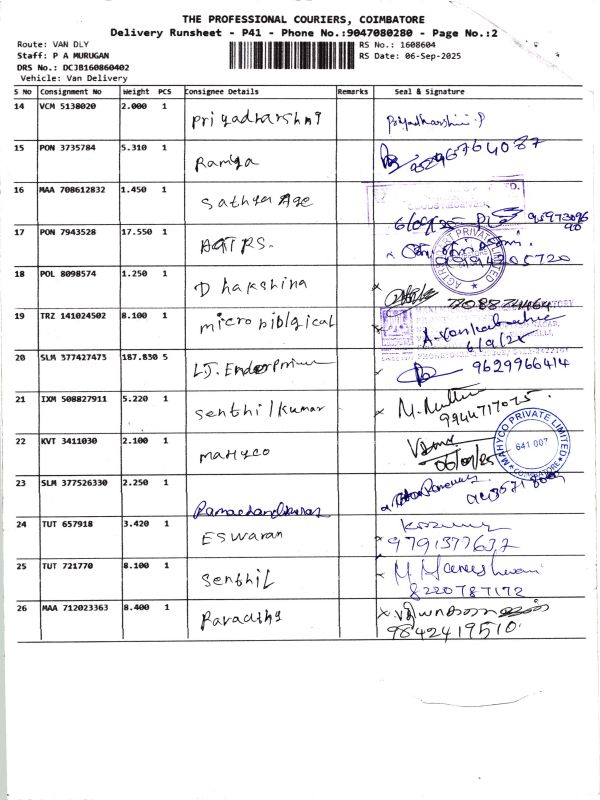 THE PROFESSIONAL COURIERS, COIMBATORE
Delivery Runsheet - P41 - Phone No.:9047080280 - Page No.:2
Route: VAN DLY RS No.: 1608604
Staff: P A MURUGAN RS Date: 06-Sep-2025
DRS No.: DCJB160860402
Vehicle: Van Delivery
S No Consignment No Weight PCS Consignee Details Remarks Seal & Signature
14 VCM 5138020 2.000 1 Priyadharshni Priyadharshini.P
15 PON 3735784 5.310 1 Ramya
16 MAA 708612832 1.450 1 Sathya Age 6/09/25
17 PON 7943528 17.550 1
18 POL 8098574 1.250 1 Dhakshina
19 TRZ 141024502 8.100 1 micro biological 6/9/25
20 SLM 377427473 187.830 5 L.J. Enterprime 9629966414
21 IXM 508827911 5.220 1 Senthilkumar 9944717075
22 KVT 3411030 2.100 1 Mahyco 06/09/25
MAHYCO PRIVATE LIMITED
641 007
COIMBATORE
23 SLM 377526330 2.250 1 Ramachandran
24 TUT 657918 3.420 1 Eswaran 9791377637
25 TUT 721770 8.100 1 Senthil 8220787172
26 MAA 712023363 8.400 1 9842419510